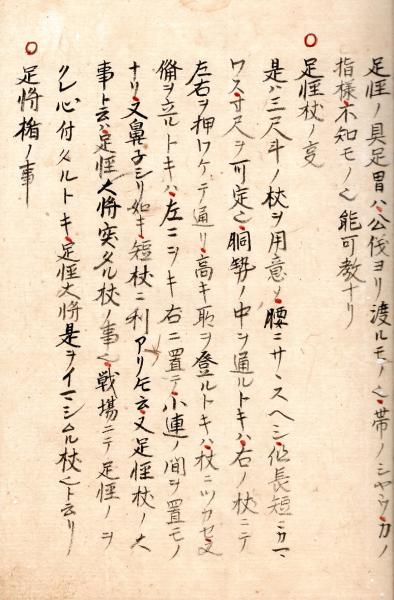 足怪ノ具足冑ハ公役ヨリ渡ルモノ也帯ノシヤウカノ
指様不知モノ也能可教ナリ
○足怪杖ノ事
是ハ三尺斗ノ杖ヲ用意シ腰ニサヽスヘシ但長短ニカマ
ワス寸尺ヲ可定也胴勢ノ中ヲ通ルトキハ右ノ杖ニテ
左右ヲ押ワケテ通リ高キ所ヲ登ルトキハ杖ニツカセ又
備ヲ立ルトキハ左ニシキ右ニ置テ小連ノ間ヲ置モノ
ナリ又鼻子シリ如キ短杖ニ利アリケ云又足怪杖ノ大
事ト云ハ足怪大将突タル杖ノ事也戦場ニテ足怪ノヲ
クレ心付タルトキ足怪大将是ヲイマシムル杖也ト云リ
○足将楯ノ事